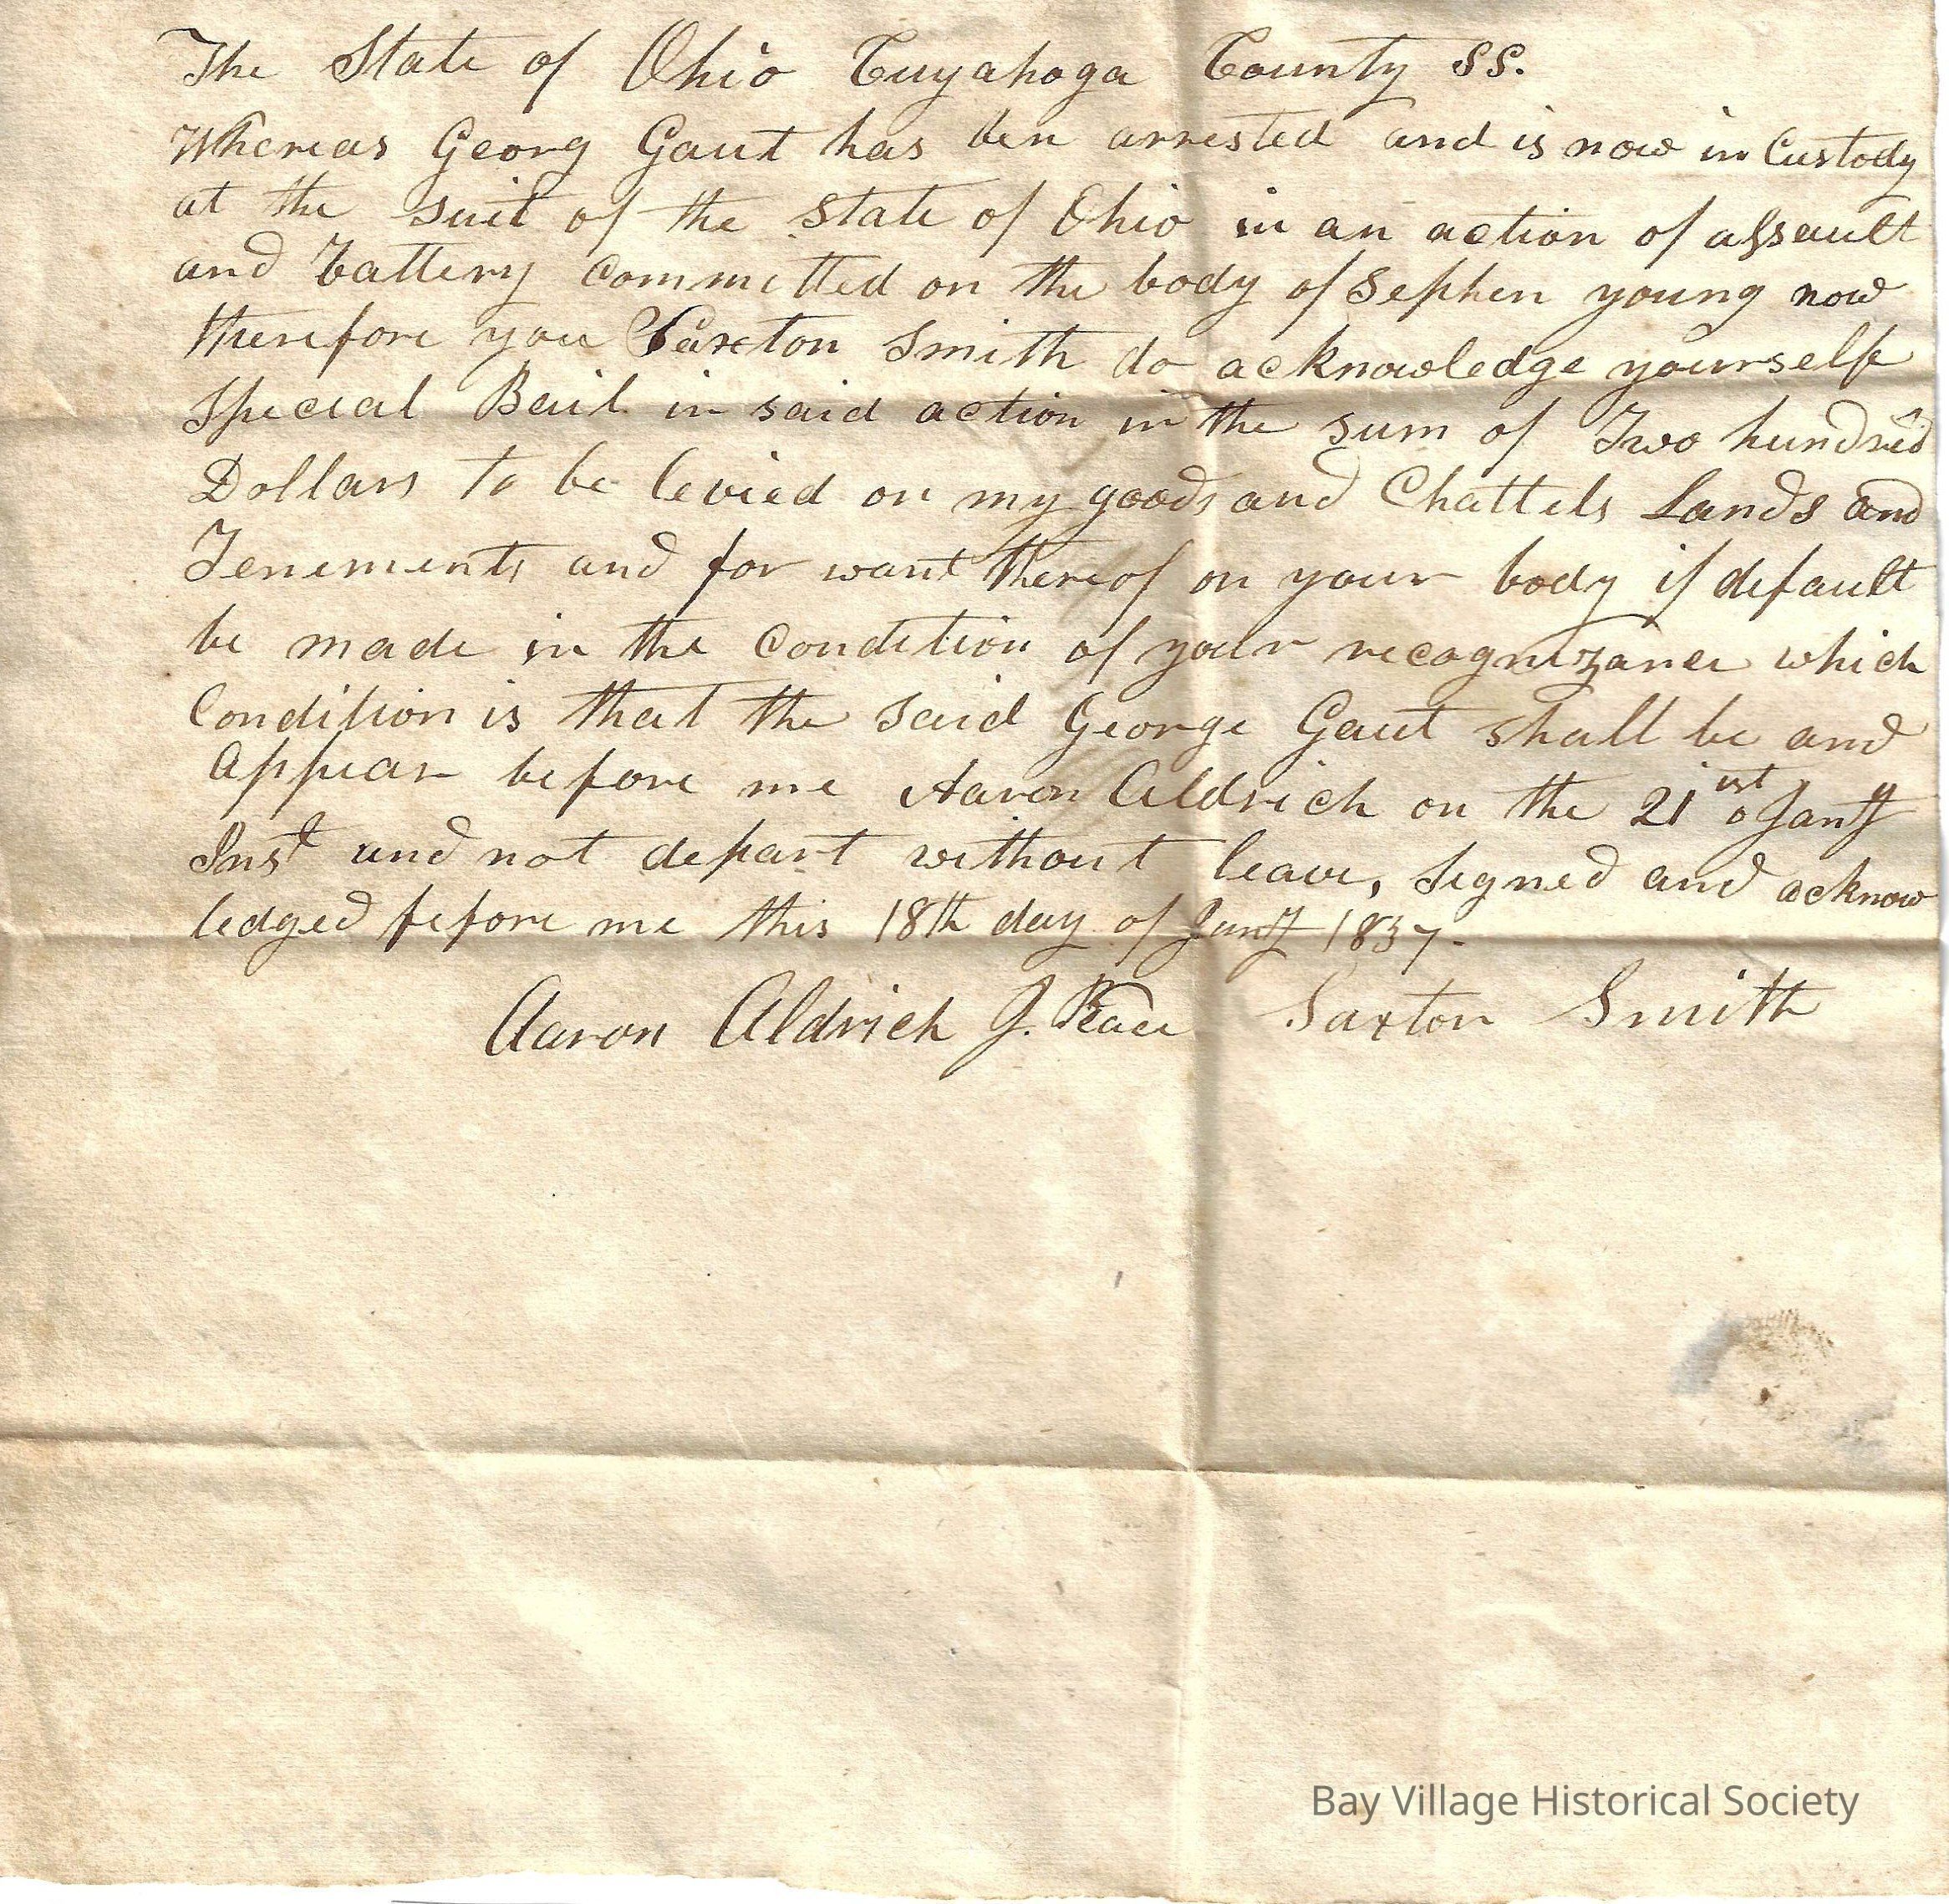 The State of Ohio Cuyahoga County SS.
Whereas Georg Gaut has ben arrested and is now in Custody
at the suit of the State of Ohio in an action of assault
and battery committed on the body of Sephen young now
therefore you Saxton Smith do acknowledge yourself
Special Bail in said action in the sum of Two hundred
Dollars to be levied on my goods and Chattels Lands and
Tenements and for want thereof on your body if default
be made in the condition of your recognizance which
Condition is that the said George Gaut shall be and
Appear before me Aaron Aldrich on the 21 ist o Jany
Inst and not depart without leave, Signed and acknow
ledged before me this 18th day of Jany 1837.
Aaron Aldrich J. Peace Saxton Smith
Bay Village Historical Society